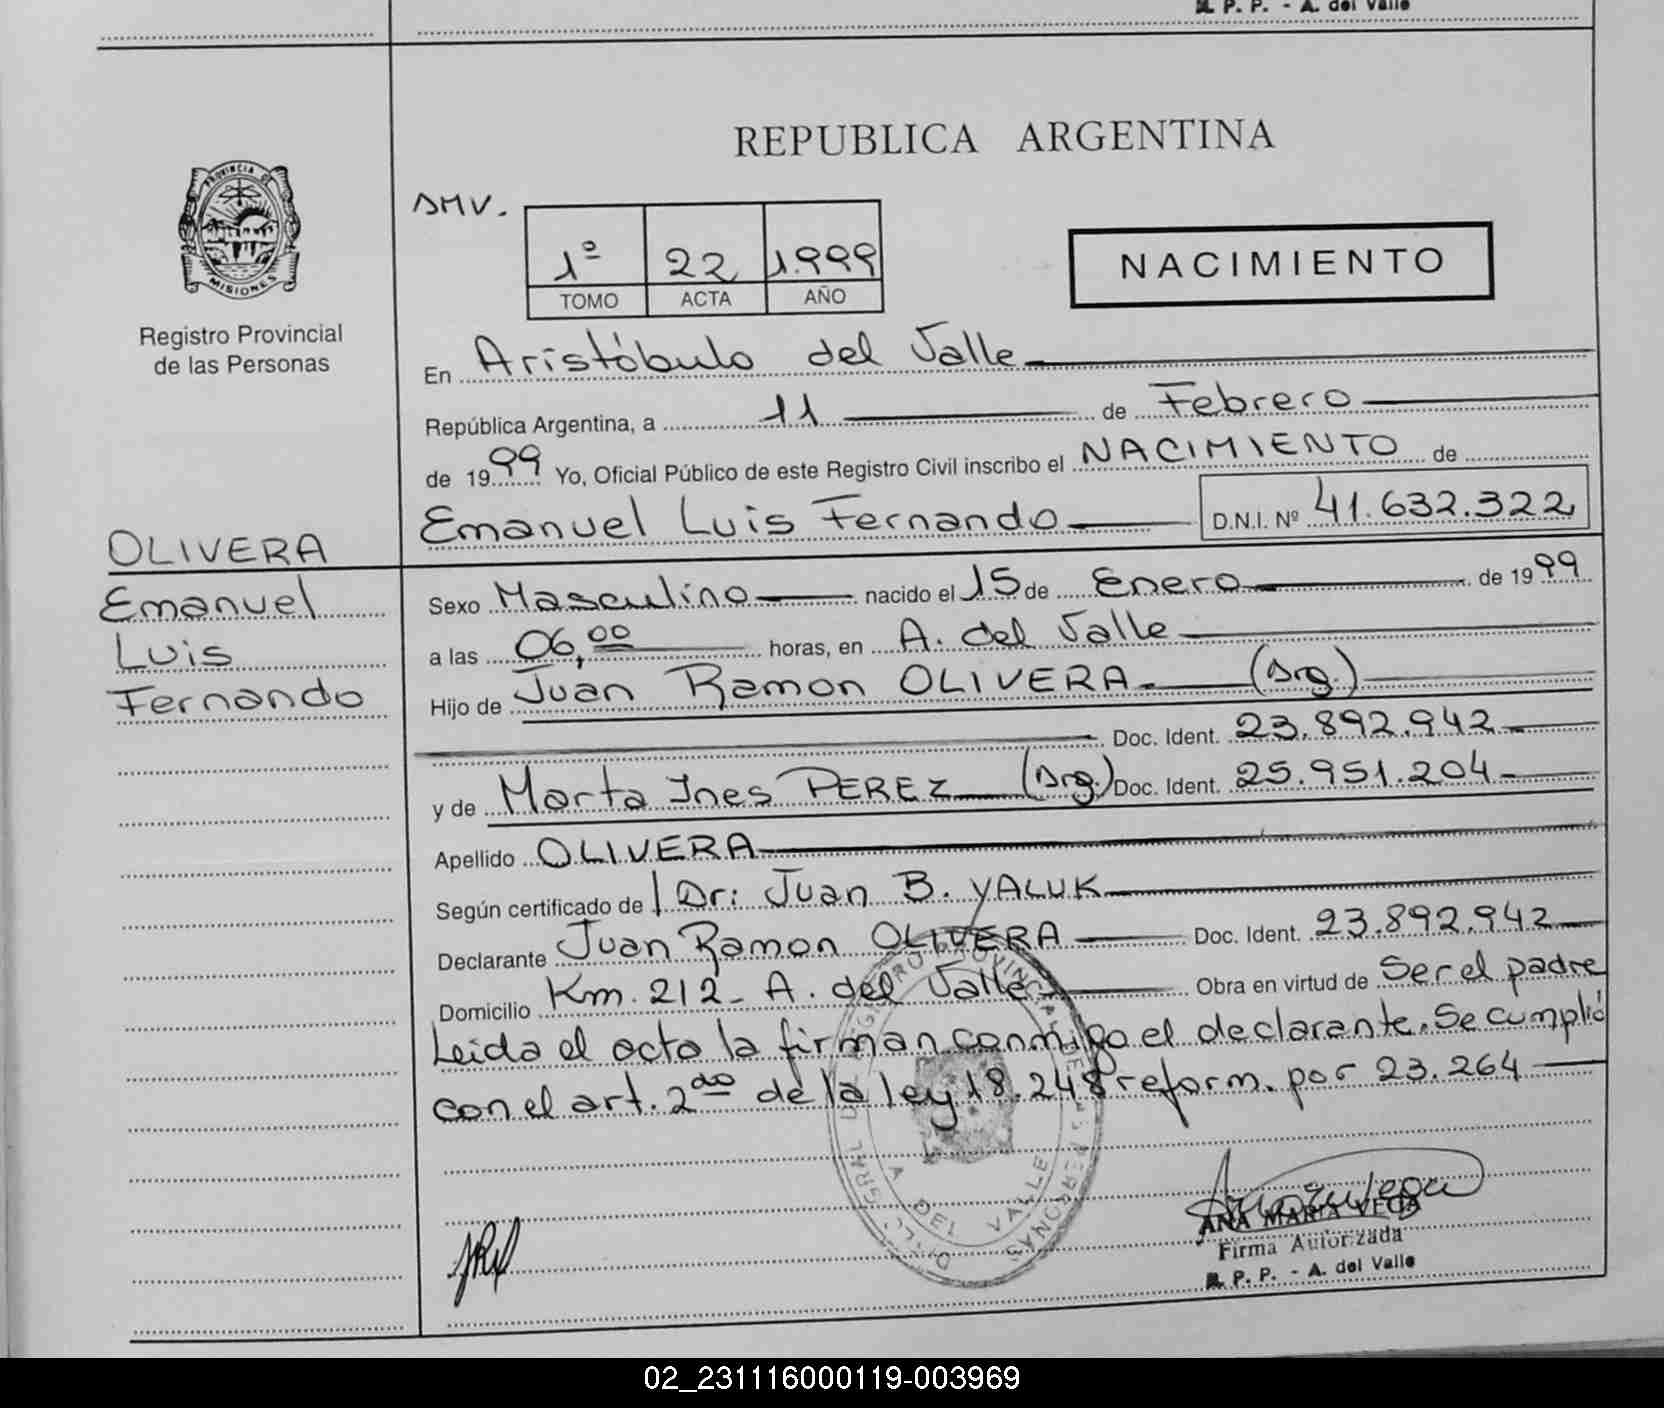 R. P. P. - A. del Valle
REPUBLICA ARGENTINA
PROVINCIA DE
MISIONES
Registro Provincial
de las Personas
DMV.
1º 22 1.999
TOMO ACTA AÑO
NACIMIENTO
En Aristóbulo del Valle
República Argentina, a 11 de Febrero
de 1999 Yo, Oficial Público de este Registro Civil inscribo el NACIMIENTO de
Emanuel Luis Fernando D.N.I. Nº 41.632.322
OLIVERA
Emanuel
Luis
Fernando
Sexo Masculino nacido el 15 de Enero de 1999
a las 06,00 horas, en A. del Valle
Hijo de Juan Ramon OLIVERA (Arg.)
Doc. Ident. 23.892.942
y de Marta Ines PEREZ (Arg.) Doc. Ident. 25.951.204
Apellido OLIVERA
Según certificado de Dr: Juan B. YALUK
Declarante Juan Ramon OLIVERA Doc. Ident. 23.892.942
Domicilio Km. 212 - A. del Valle Obra en virtud de Ser el padre
Leida el acta la firman conmigo el declarante. Se cumplió
con el art. 2do de la ley 18.248 reform. por 23.264
REGISTRO PROVINCIAL DE LAS PERSONAS
A. DEL VALLE
ANA MARIA VEGA
Firma Autorizada
R. P. P. - A. del Valle
02_231116000119-003969